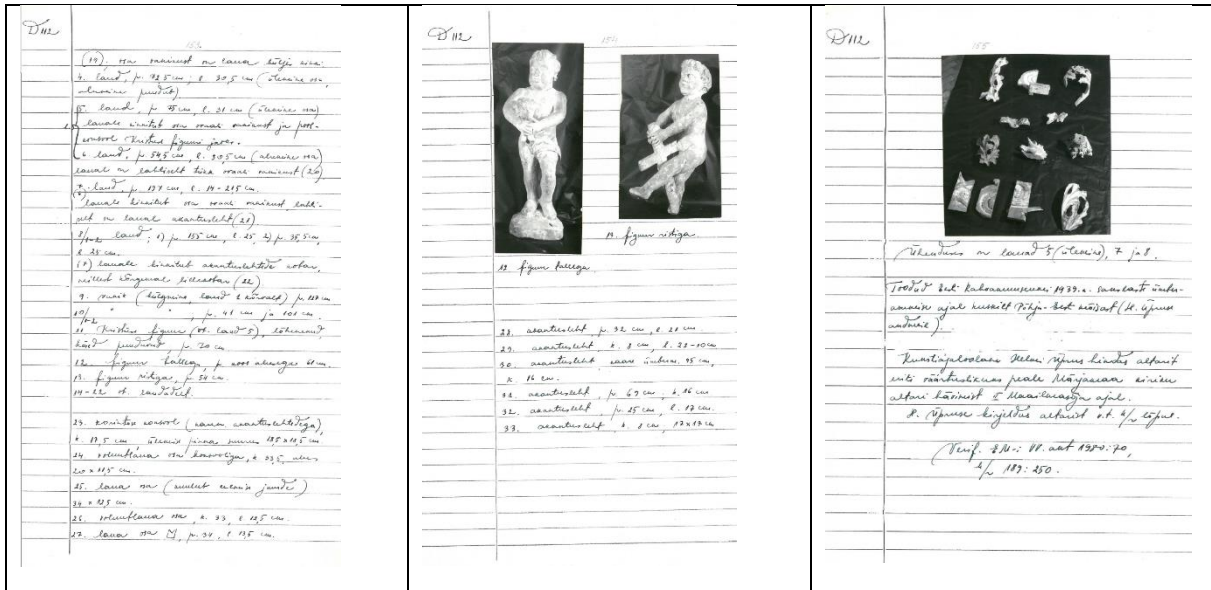 D 112
153
(19). osa raamist on laua küljes kinni.
4. laud, p. 72,5 cm; l. 30,5 cm (ülemine osa,
alumine puudub)
5. laud, p. 75 cm, l. 31 cm (ülemine osa)
lauale kinnitub osa ovaali raamist ja pool-
konsool Kristuse figuuri jaoks.
6. laud, p. 54,5 cm, l. 30,5 cm (alumine osa)
laual on lahtiselt tükk ovaali raamist (20)
7. laud, p. 197 cm, l. 14 - 21,5 cm.
lauale kinnitub osa ovaali raamist, lahti-
selt on laual akantusleht (21)
8/1-2 laud; 1) p. 155 cm, l. 25, 2) p. 35,5 cm,
l. 25 cm.
lauale kinnitub akantuslehtede
(22)
9. (külgmine laud), p. 117 cm
10/1-2 " " , p. 41 cm ja 101 cm.
11. Kristuse figuur (vt. laud 5), lõhenenud,
käed puuduvad, p. 70 cm
12. figuur kallega, p. koos alusega 61 cm.
13. figuur ristiga, p. 54 cm.
14-22 vt. laudadelt.
23. korintose konsool (akantuslehtedega),
k. 17,5 cm ülemise pinna suurus 18,5 x 18,5 cm
24. osa konsooliga, k. 33,5, alus
20 x 18,5 cm.
25. laua osa
34 x 12,5 cm.
26. osa, k. 33, l. 12,5 cm.
27. laua osa, p. 34, l. 13,5 cm.
D 112
154
13. figuur ristiga.
12. figuur kallega
28. akantusleht p. 32 cm, l. 21 cm
29. akantusleht k. 8 cm, l. 28-10 cm
30. akantusleht 95 cm,
k. 16 cm.
31. akantusleht, p. 69 cm, k. 26 cm
32. akantusleht, p. 25 cm, l. 17 cm
33. akantusleht, k. 8 cm, 17 x 17 cm
D 112
155
Ühenduses on lauad 5 (ülemine), 7 ja 8.
Toodud Eesti Kabamuuseumi 1939. a. sakslaste ümber-
asumise ajal kuskilt Põhja-Eesti mõisast (H. Üpruse
andmeil).
Kunstiajaloolane Helmi Üprus hindas altarit
eriti väärtuslikuna peale Märjamaa kiriku
altari hävimist II Maailmasõja ajal.
H. Üpruse kirjeldus altarist v.t. k/r lõpul.
Verif. akt 1980:70,
k/r 189:250.